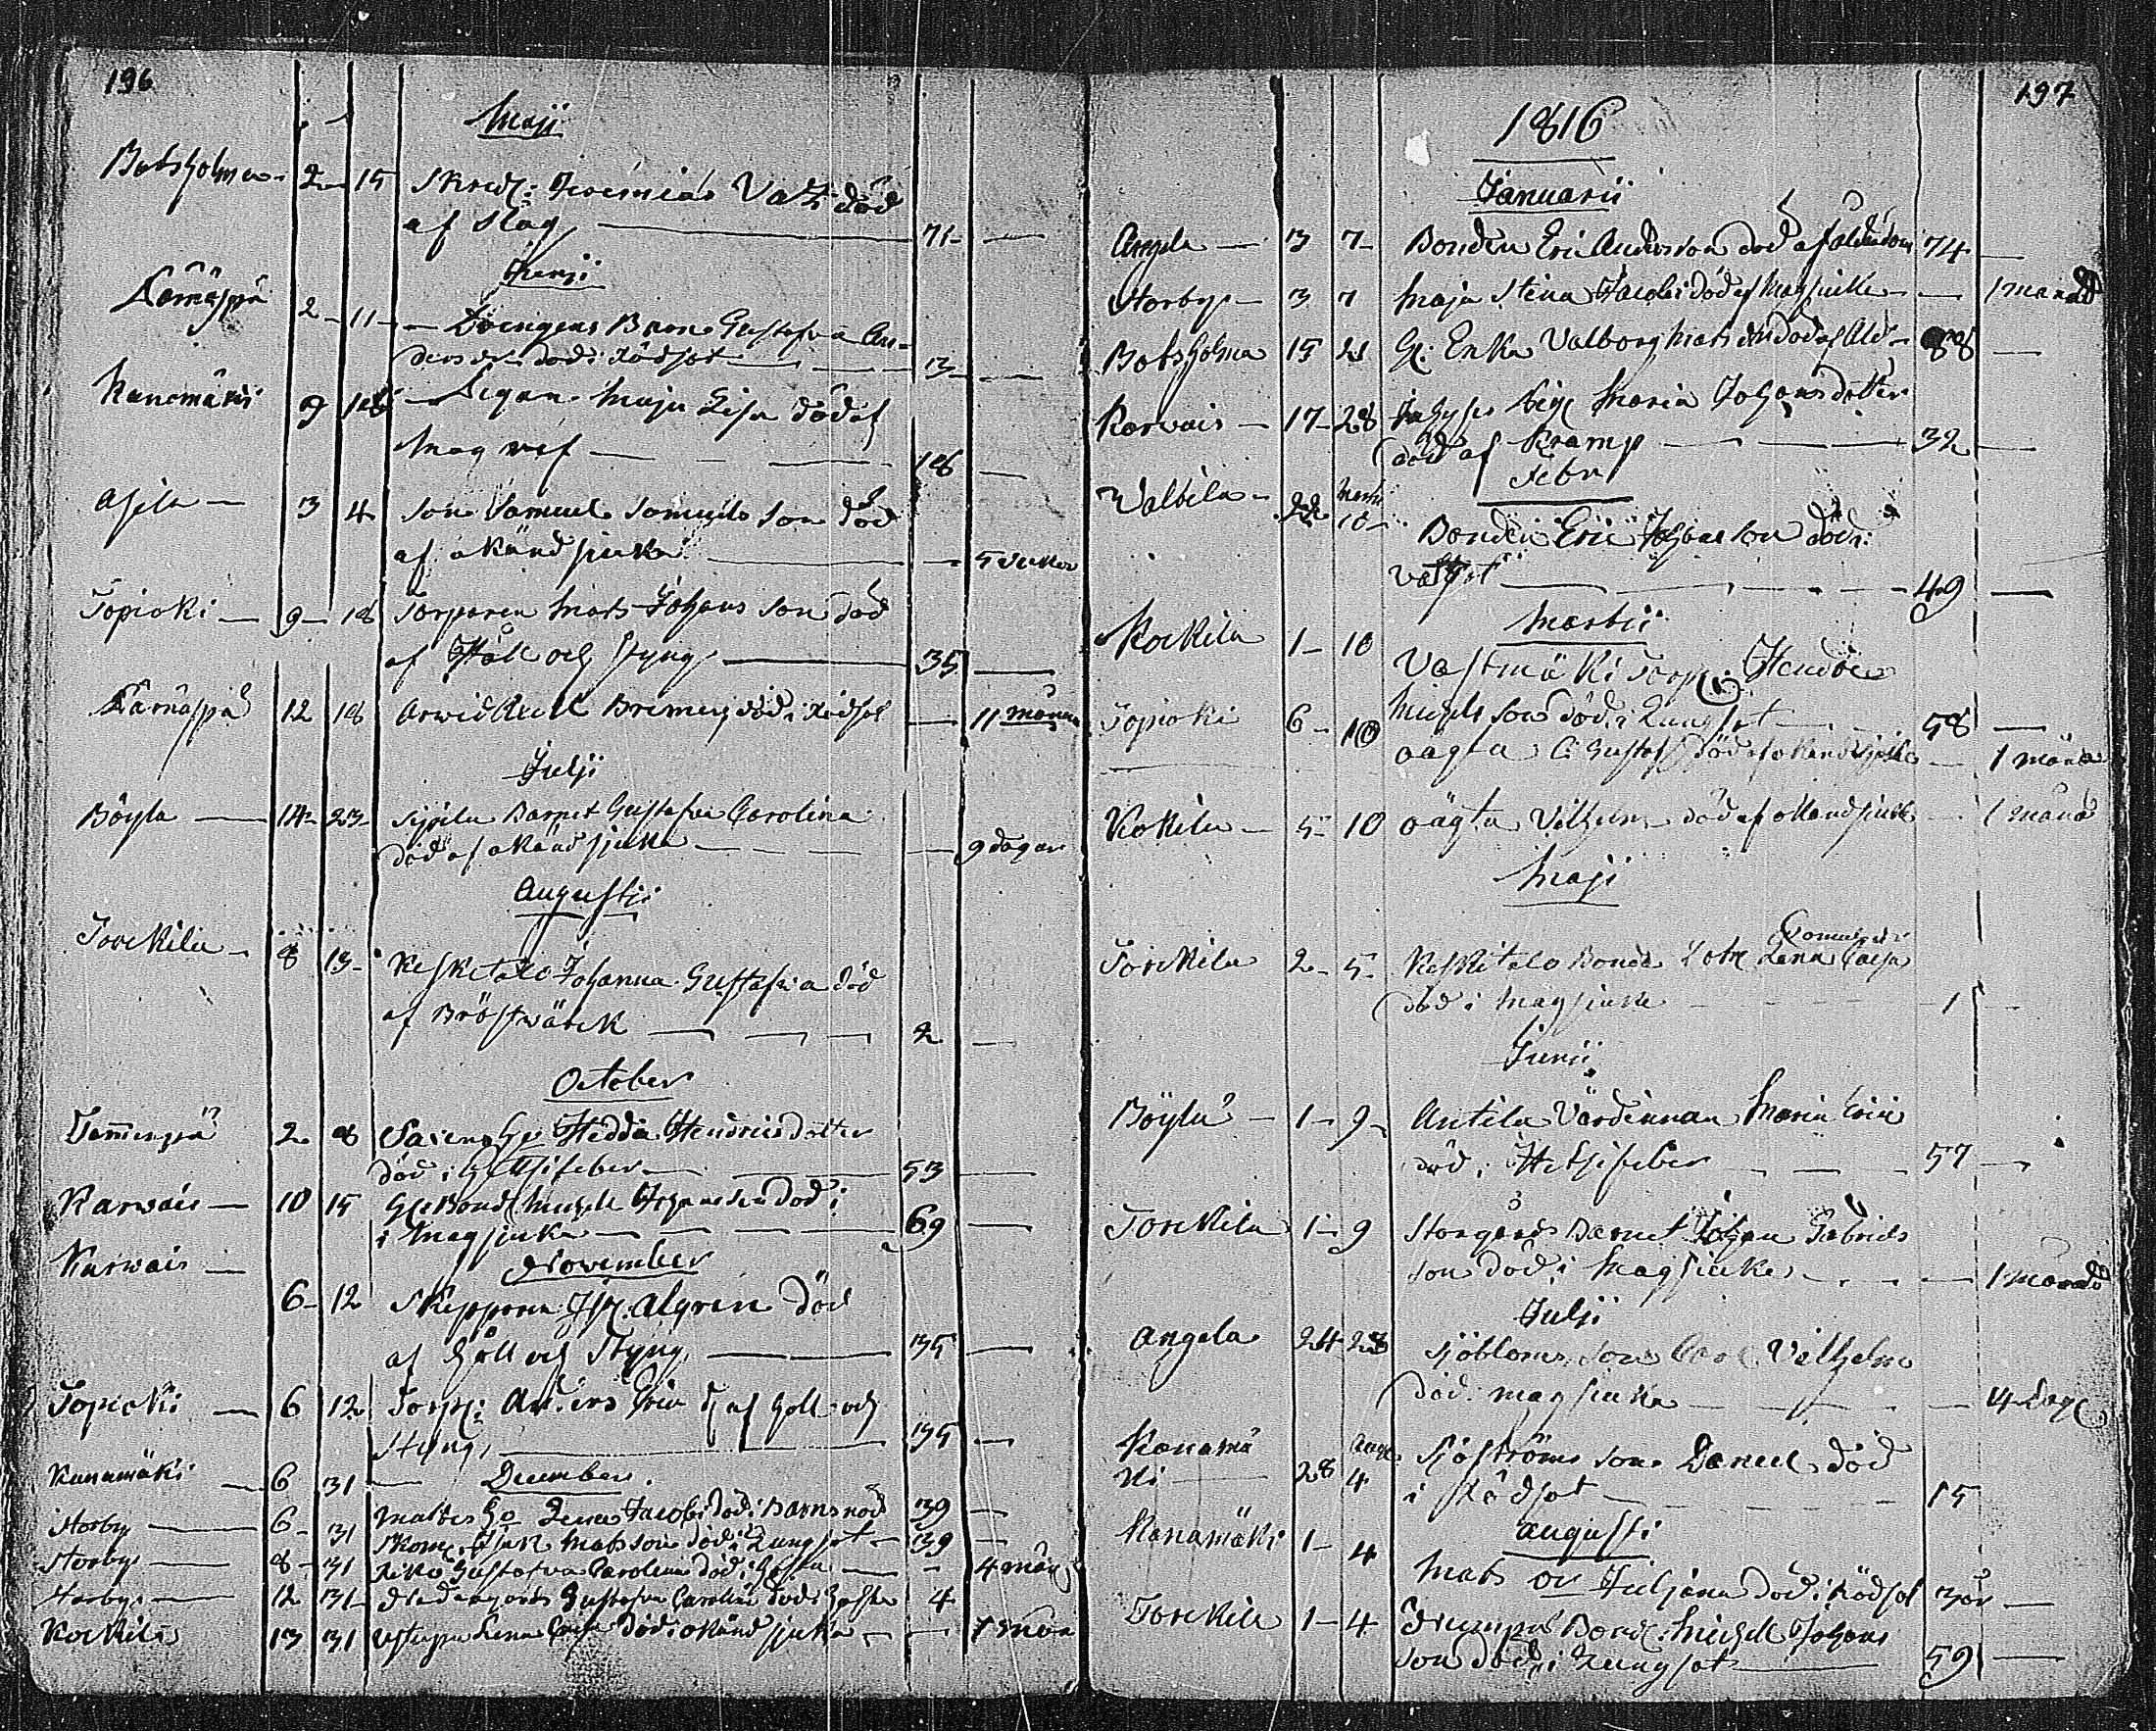 196
Maji
Botsholma 2 15 Skred: Jeremias Vatz död
af slag 71
Junji
Lämäspä 2 11 Drengens Barn Gustafva An-
ders dr död i Rödsot 3
Kanamäki 9 18 Pigan Maja Lisa död af
Mag ref 18
Afila 3 4 Son Samuel Samuels Son död
af okänd sjuka 5 veckor
Topioki 9 18 Torparen Mats Johans son död
af Håll och styng 35
Lämäspä 12 18 Arwid Bremer död i Rödsot 11 måna
Julji
Böyla 14 23 Barnet Gustafva Carolina
död af okänd sjuka 9 dagar
Augustji
Torckila 8 13 Keskitalo Johanna Gustafva död
af Bröstwärck 2
October
Tammenpä 2 8 Hedda Hendricsdotter
död i Hettsifeber 53
Karwais 10 15 Gl: Bond Michell Johansson död i
i Magsjuka 69
November
Karwais
6 12 Skepparen Algren död
af håll och Styng 35
Topioki 6 12 Torp: Anders Eric d af håll och
Styng 35
Kanamäki 6 31 December
Mattes Lena Jacobs död i Barnsnöd 39
Storby 6 31 Mats son död i Lungsot 39
Storby 8 31 Gustafva Carolina död i Hosta 4 mån
Storby 12 31 Nedergårds Gustafva Carolina död i Hosta 4
Kockila 13 31 Lena Caisa död i okänd sjuka 1 mån
197
1816
Januarii
Angela 3 7 Bonden Eric Andersson död af ålderdom 74
Storby 3 7 Maja Stina Jacobs död af Magsjuka 1 månad
Botsholma 15 21 Gl: Enka Valborg Mats dr död af Åld 88
Karwais 17 28 Inhyses Pig Maria Johansdotter
död af Kramp 32
Febr
Walbila 22 Martii 10 Bonden Eric Johansson död i
Vattsot 49
Martii
Kockila 1 10 Västmäki Torp: Hendric
Michels son död i Lungsot 58
Topioki 6 10 oägta C: Gustaf död af okänd sjuka 1 måna
Kokila 5 10 oägta Vilhelm död af okänd sjuka 1 måna
Maji
Torckila 2 5 Keskitalo Bond Dotr Lena Caisa
död i Magsjuka 1
Junii
Böyla 1 9 Antila Värdinnan Maria Eric
död i Hetsifeber 57
Torckila 1 9 Storgårds Barnet Johan Gabriels
son död i Magsjuka 1 månad
Julji
Angela 24 28 Sjöbloms son Carl Vilhelm
död i magsjuka 4 dag
Kanamä
ki 28 Aug 4 Sjöströms son Daniel död
i Rödsot 15
Augusti
Kanamäki 1 4 Mats dr Juljana död i Rödsot 3 år
Torckila 1 4 Bond: Michell Johans
son död i Lungsot 59